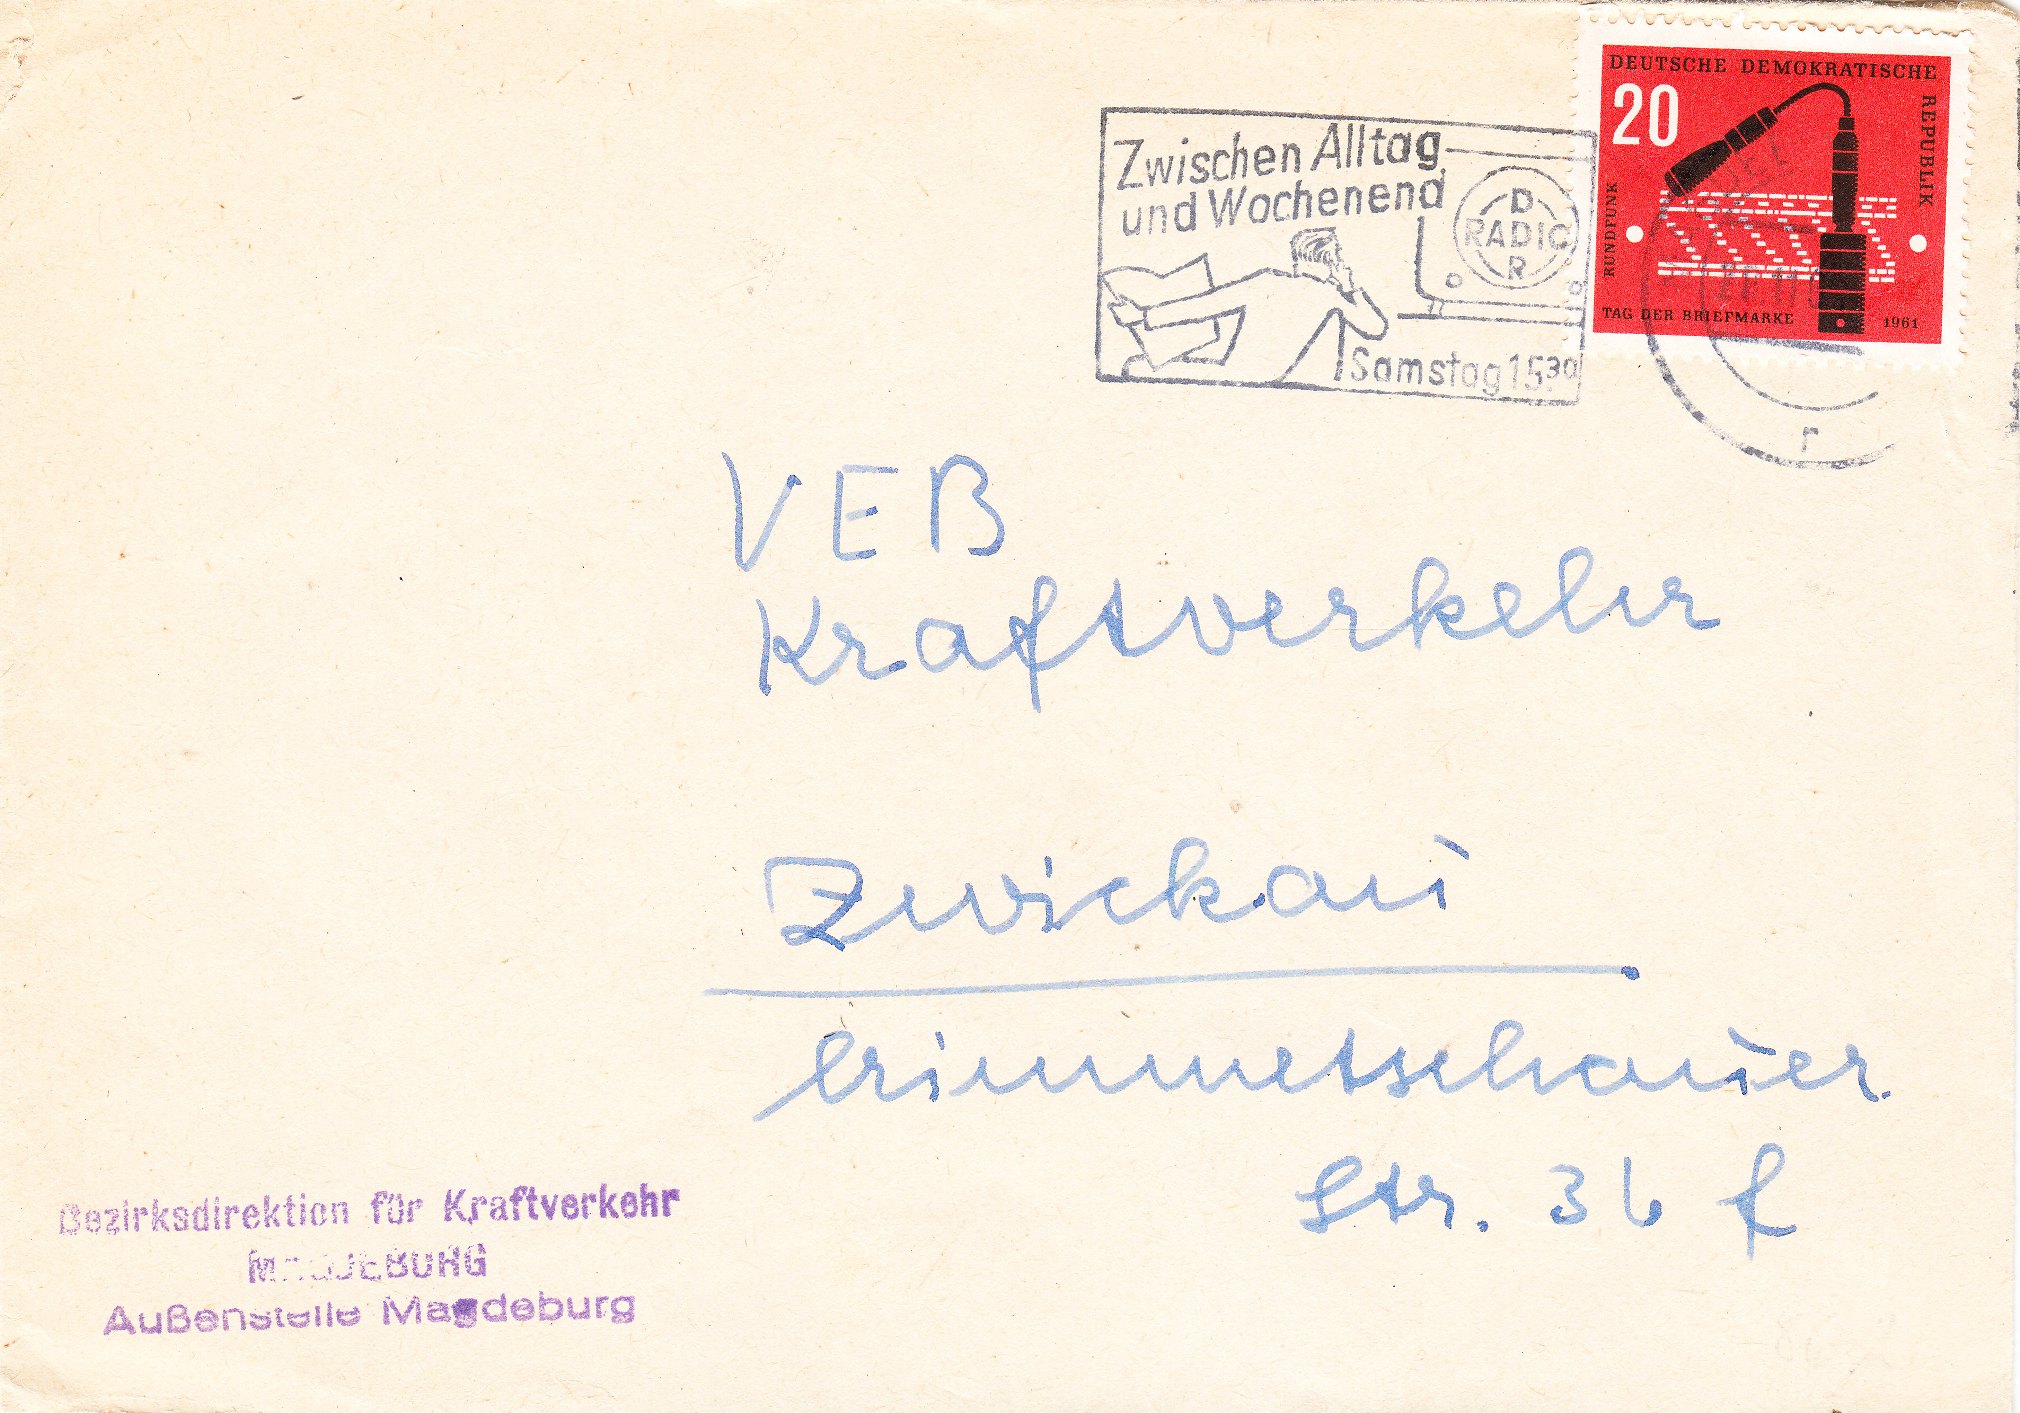 DEUTSCHE DEMOKRATISCHE
REPUBLIK
20
RUNDFUNK
TAG DER BRIEFMARKE 1961
Zwischen Alltag
und Wochenend
D
RADIO
R
Samstag 15³⁰
r
VEB
Kraftverkehr
Zwickau
Crimmetschauer
Str. 36 f
Bezirksdirektion für Kraftverkehr
MAGDEBURG
Außenstelle Magdeburg